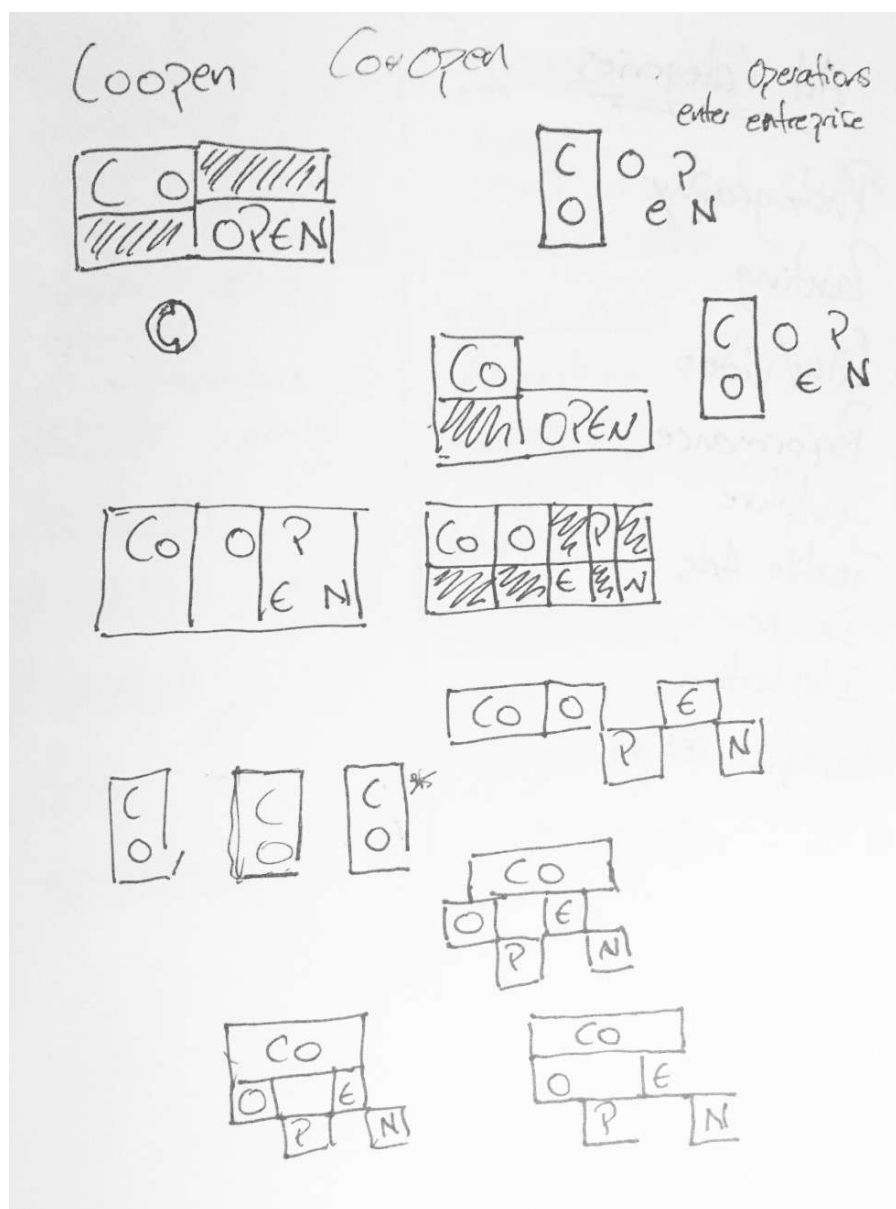 Coopen
Co+Open
Operations
enter entreprise
C O
OPEN
C O P
O e N
C
C O P
O E N
Co
OPEN
Co O P
E N
Co O P
E N
Co O E
P N
C
O
C
O
C
O
*
Co
O E
P N
Co
O E
P N
Co
O E
P N